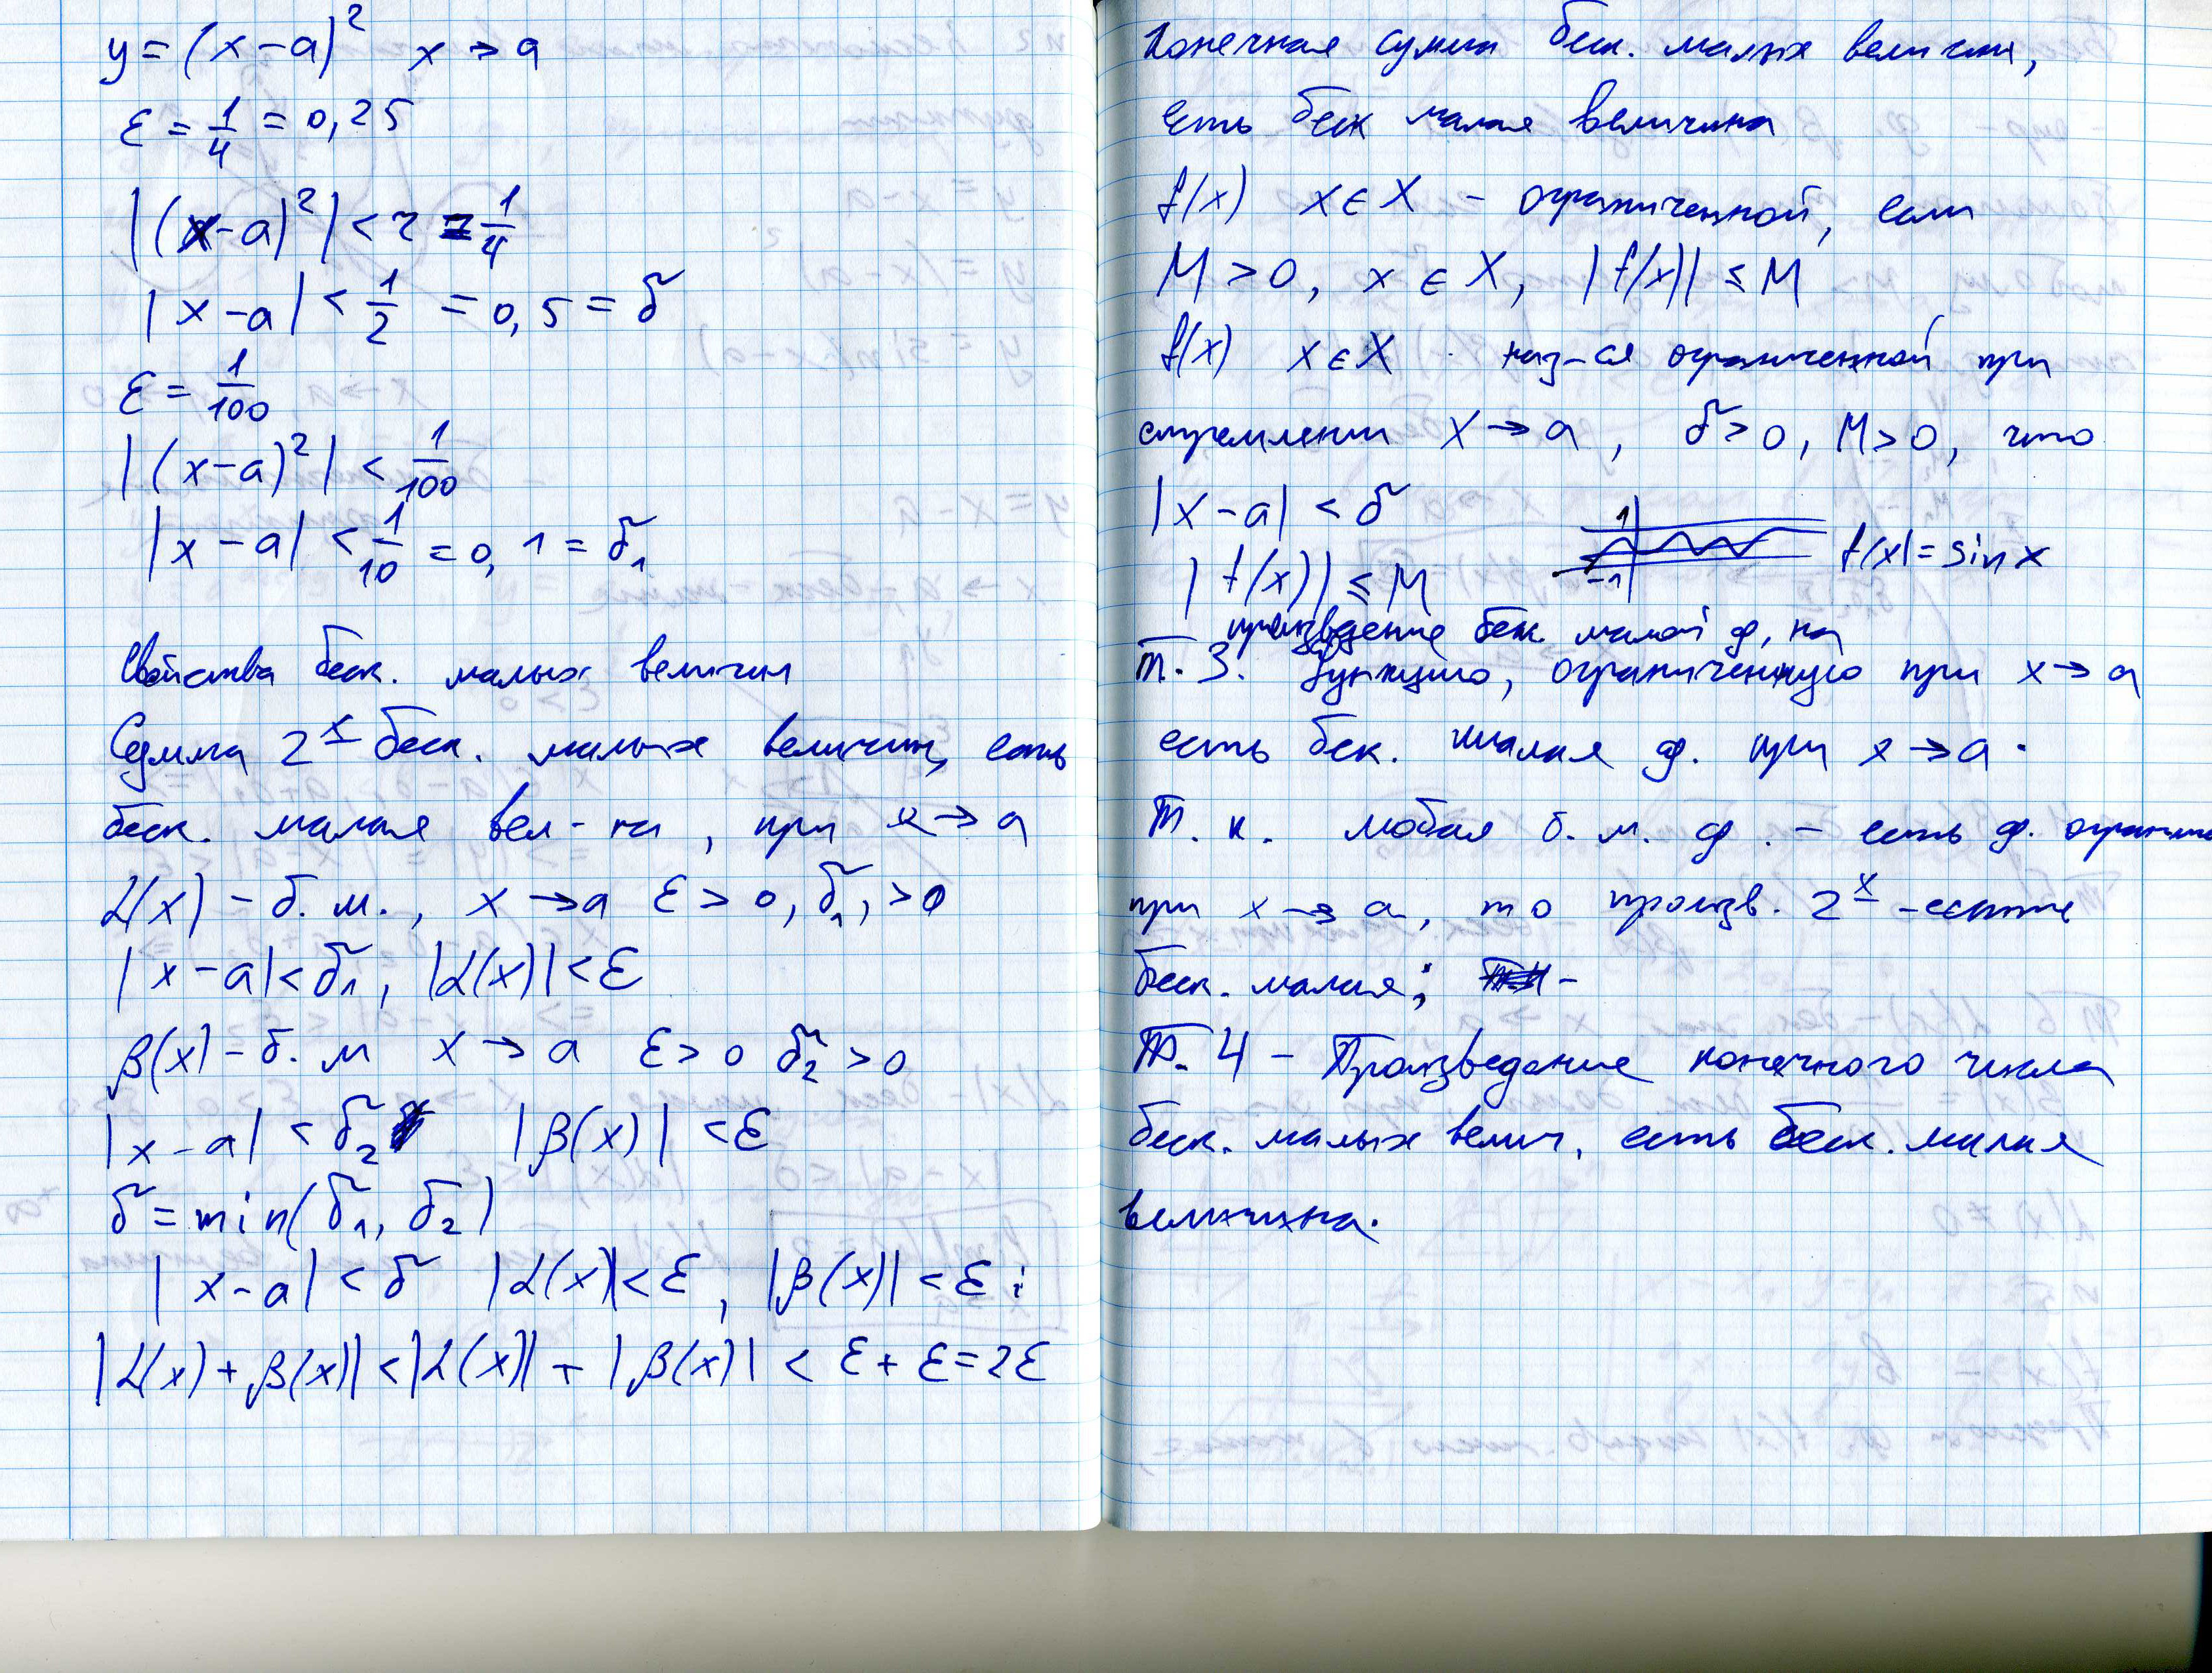 y = (x - a)² x → a
ε = 1/4 = 0,25
|(x - a)²| < 1/4
|x - a| < 1/2 = 0,5 = δ
ε = 1/100
|(x - a)²| < 1/100
|x - a| < 1/10 = 0,1 = δ₁
Свойства беск. малых величин
Сумма 2ˣ беск. малых величин, есть
беск. малая вел-на, при x → a
α(x) - б. м., x → a ε > 0, δ₁, > 0
|x - a| < δ₁, |α(x)| < ε
β(x) - б. м x → a ε > 0 δ₂ > 0
|x - a| < δ₂ |β(x)| < ε
δ = min(δ₁, δ₂)
|x - a| < δ |α(x)| < ε, |β(x)| < ε;
|α(x) + β(x)| < |α(x)| + |β(x)| < ε + ε = 2ε
Конечная сумма беск. малых величин,
есть беск малая величина
f(x) x ∈ X - ограниченной, если
M > 0, x ∈ X, |f(x)| ≤ M
f(x) x ∈ X наз-ся ограниченной при
стремлении x → a, δ > 0, M > 0, что
|x - a| < δ
1
-1
f(x) = sin x
|f(x)| ≤ M
произведение беск. малой ф. на
Т. 3. функцию, ограниченную при x → a
есть бек. малая ф. при x → a.
Т. к. любая б. м. ф. - есть ф. огранич
при x → a, то произв. 2ˣ -
беск. малая;
Т. 4 - Произведение конечного числа
беск. малых велич. есть беск. малая
величина.